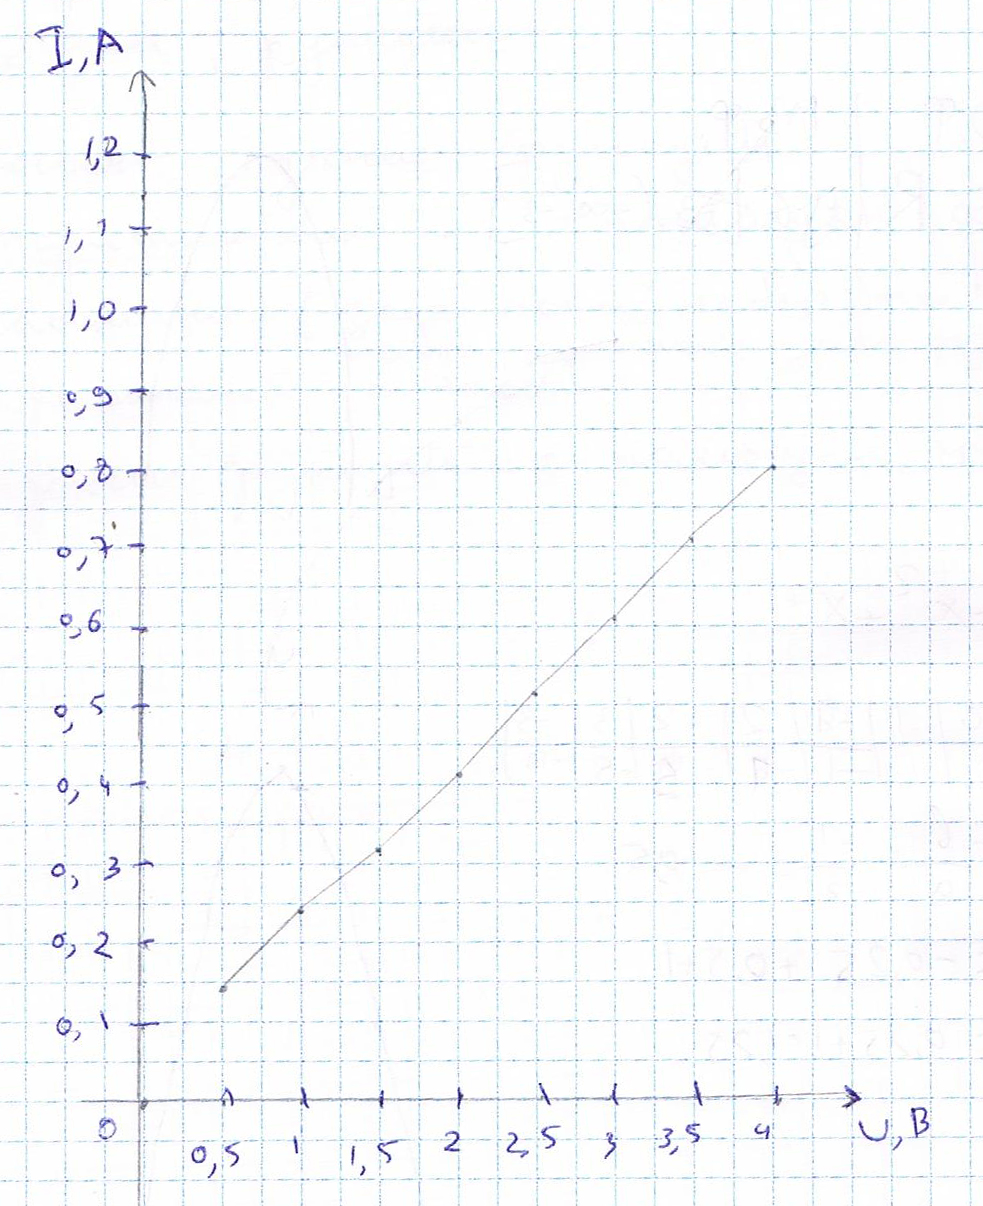 I, A
1,2
1,1
1,0
0,9
0,8
0,7
0,6
0,5
0,4
0,3
0,2
0,1
0
0,5 1 1,5 2 2,5 3 3,5 4 U, В